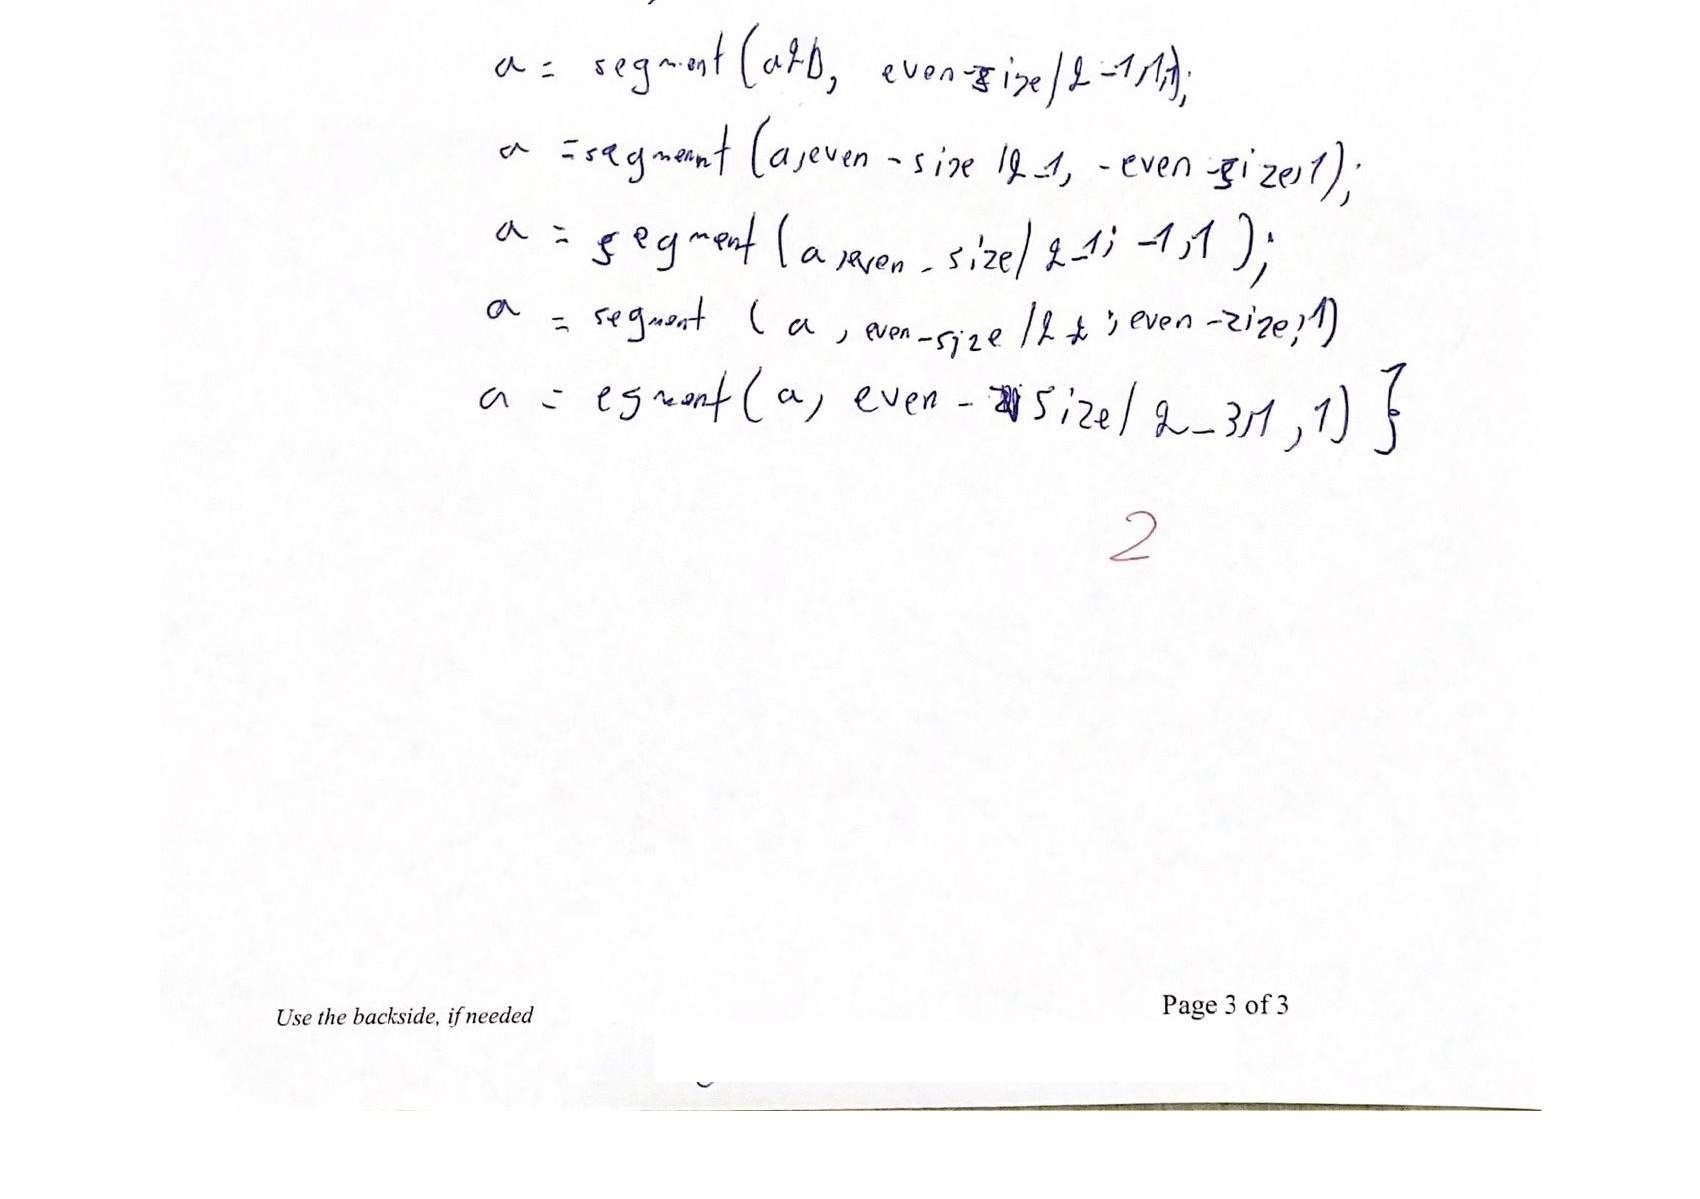 a = segment (a2D, even-size/2-1,1,1);
a =segmennt (a,even - size /2-1, -even -size,1);
a = segment (a,even - size/ 2-1; -1,1 );
a = segment ( a , even-size /2 ; even -zize;1)
a = egment( a, even - size/ 2-3,1 ,1) }
2
Use the backside, if needed
Page 3 of 3